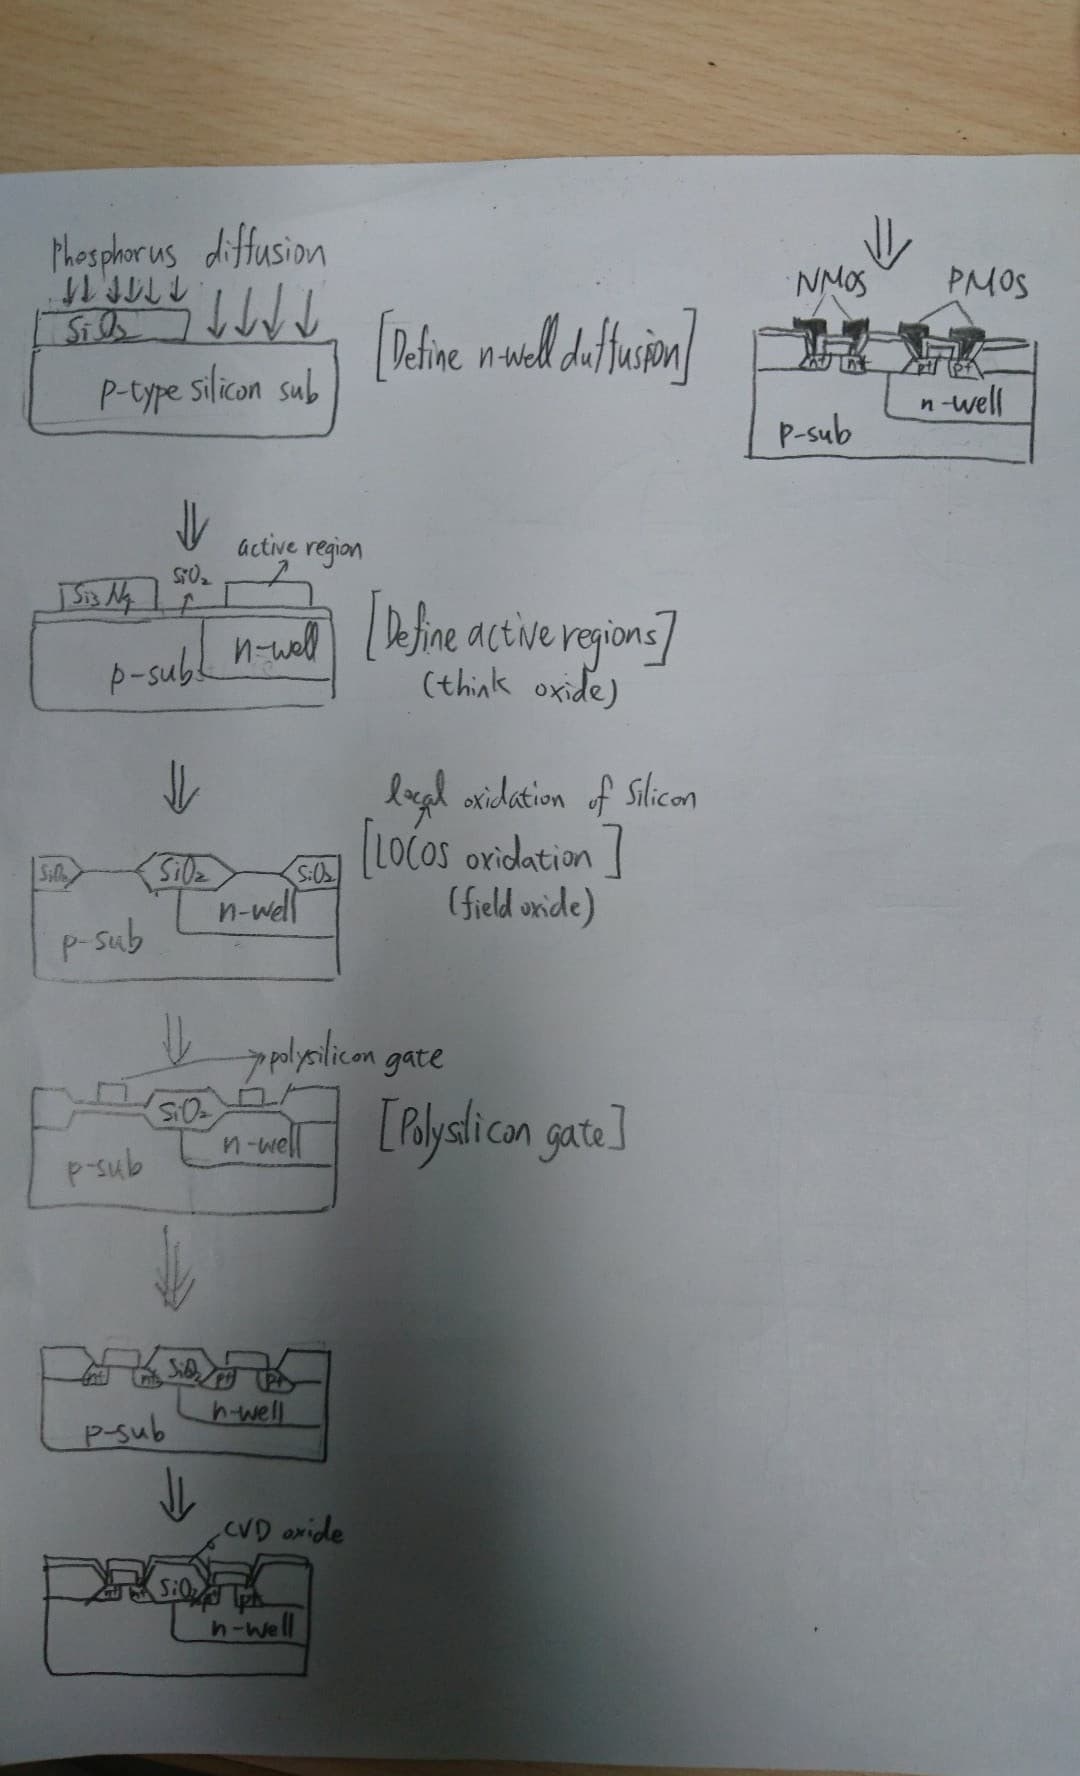 Phosphorus diffusion
SiO₂
p-type silicon sub
[Define n-well duffusion]
active region
SiO₂
Si3 N4
n-well
p-sub
[Define active regions]
(think oxide)
local oxidation of Silicon
[LOCOS oxidation]
(field oxide)
SiO₂ SiO₂ SiO₂
n-well
p-sub
polysilicon gate
SiO₂
n-well
p-sub
[Polysilicon gate]
n+ n+ SiO₂ p+ p+
n-well
p-sub
CVD oxide
n+ n+ SiO₂ p+ p+
n-well
NMOS PMOS
n+ n+ p+ p+
n-well
p-sub